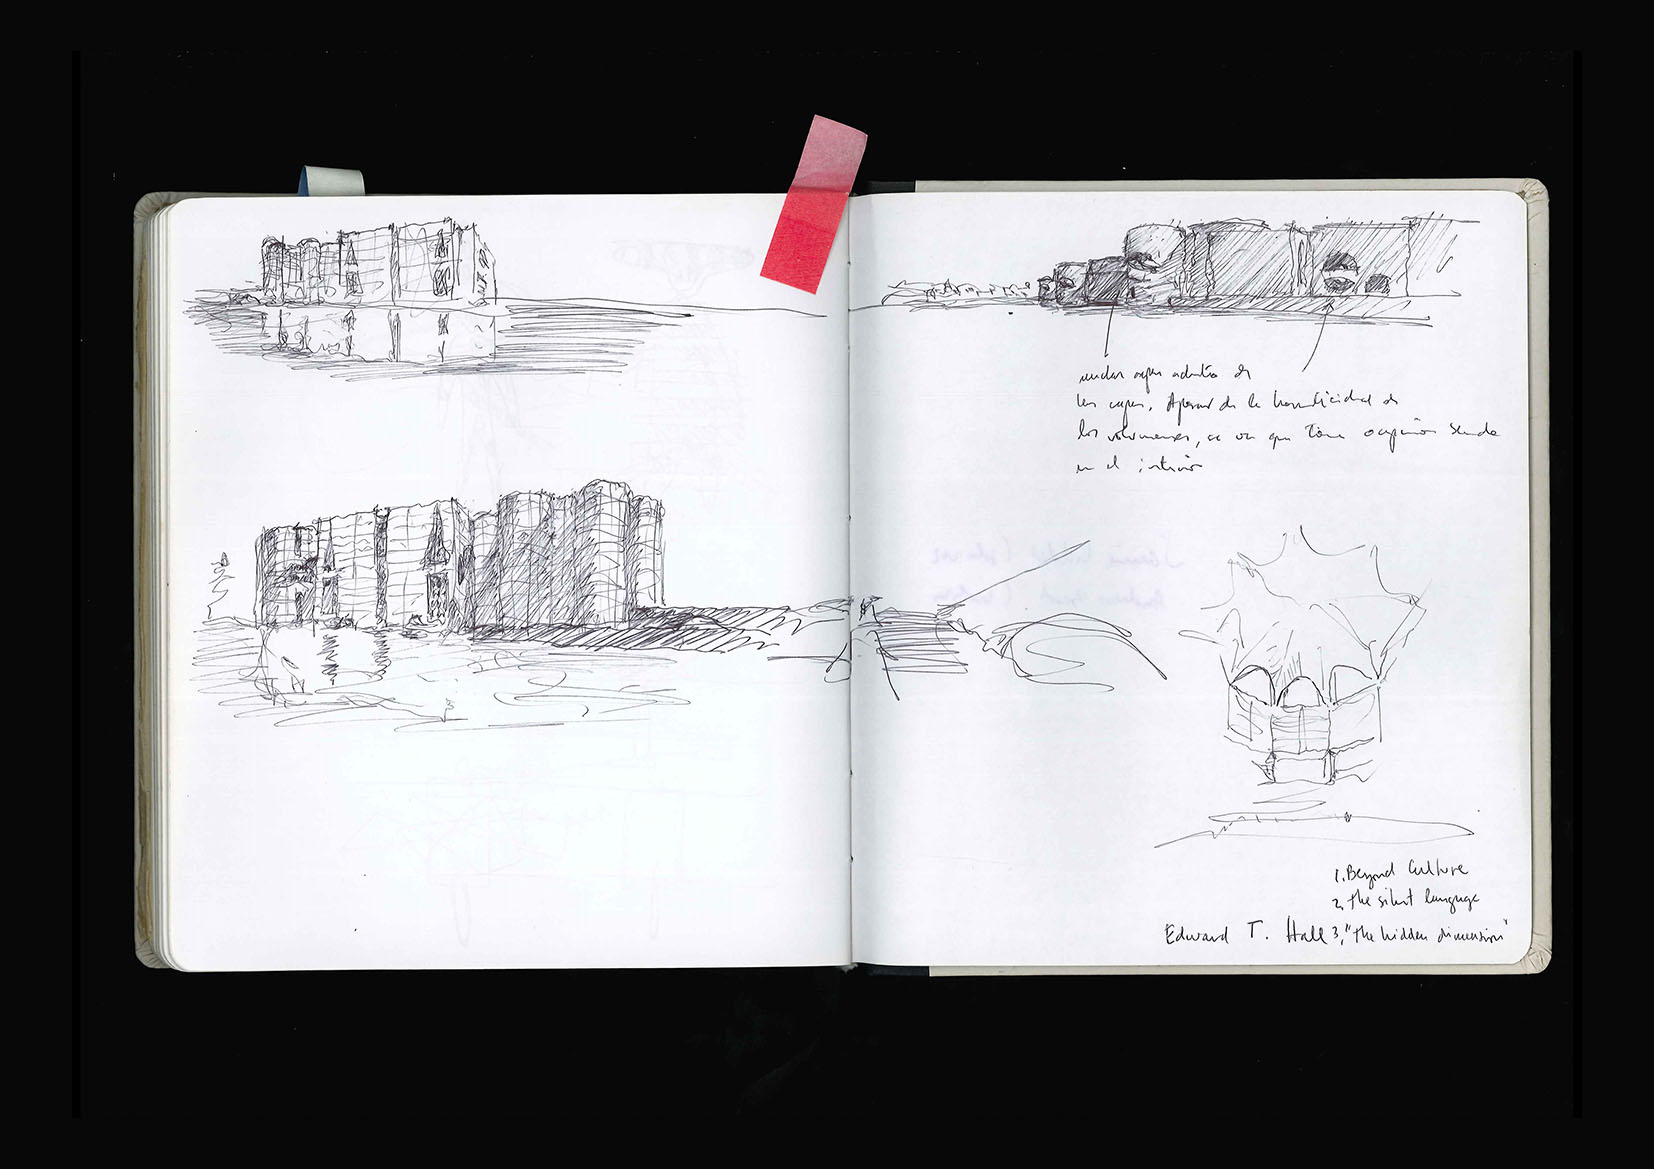 muchas capas adentro de
las capas. Apesar de la hermeticidad de
los volumenes, se ve que tiene
en el interior
1. Beyond Culture
2. The silent language
Edward T. Hall 3. "The hidden dimension"